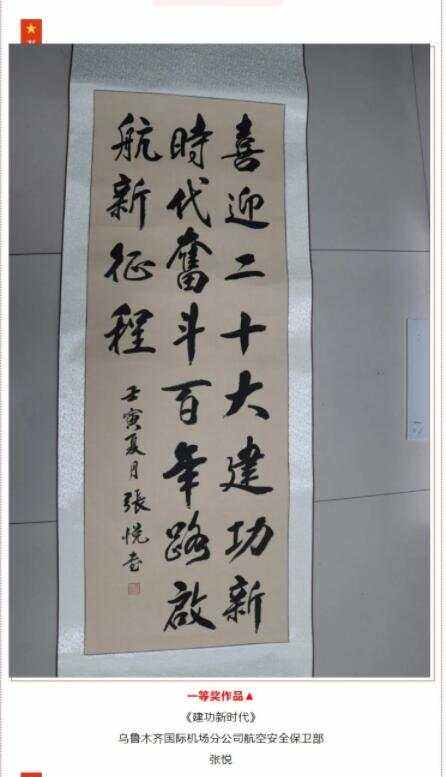 喜迎二十大建功新
時代奮斗百年路啟
航新征程
壬寅夏月張悦书
一等奖作品▲
《建功新时代》
乌鲁木齐国际机场分公司航空安全保卫部
张悦